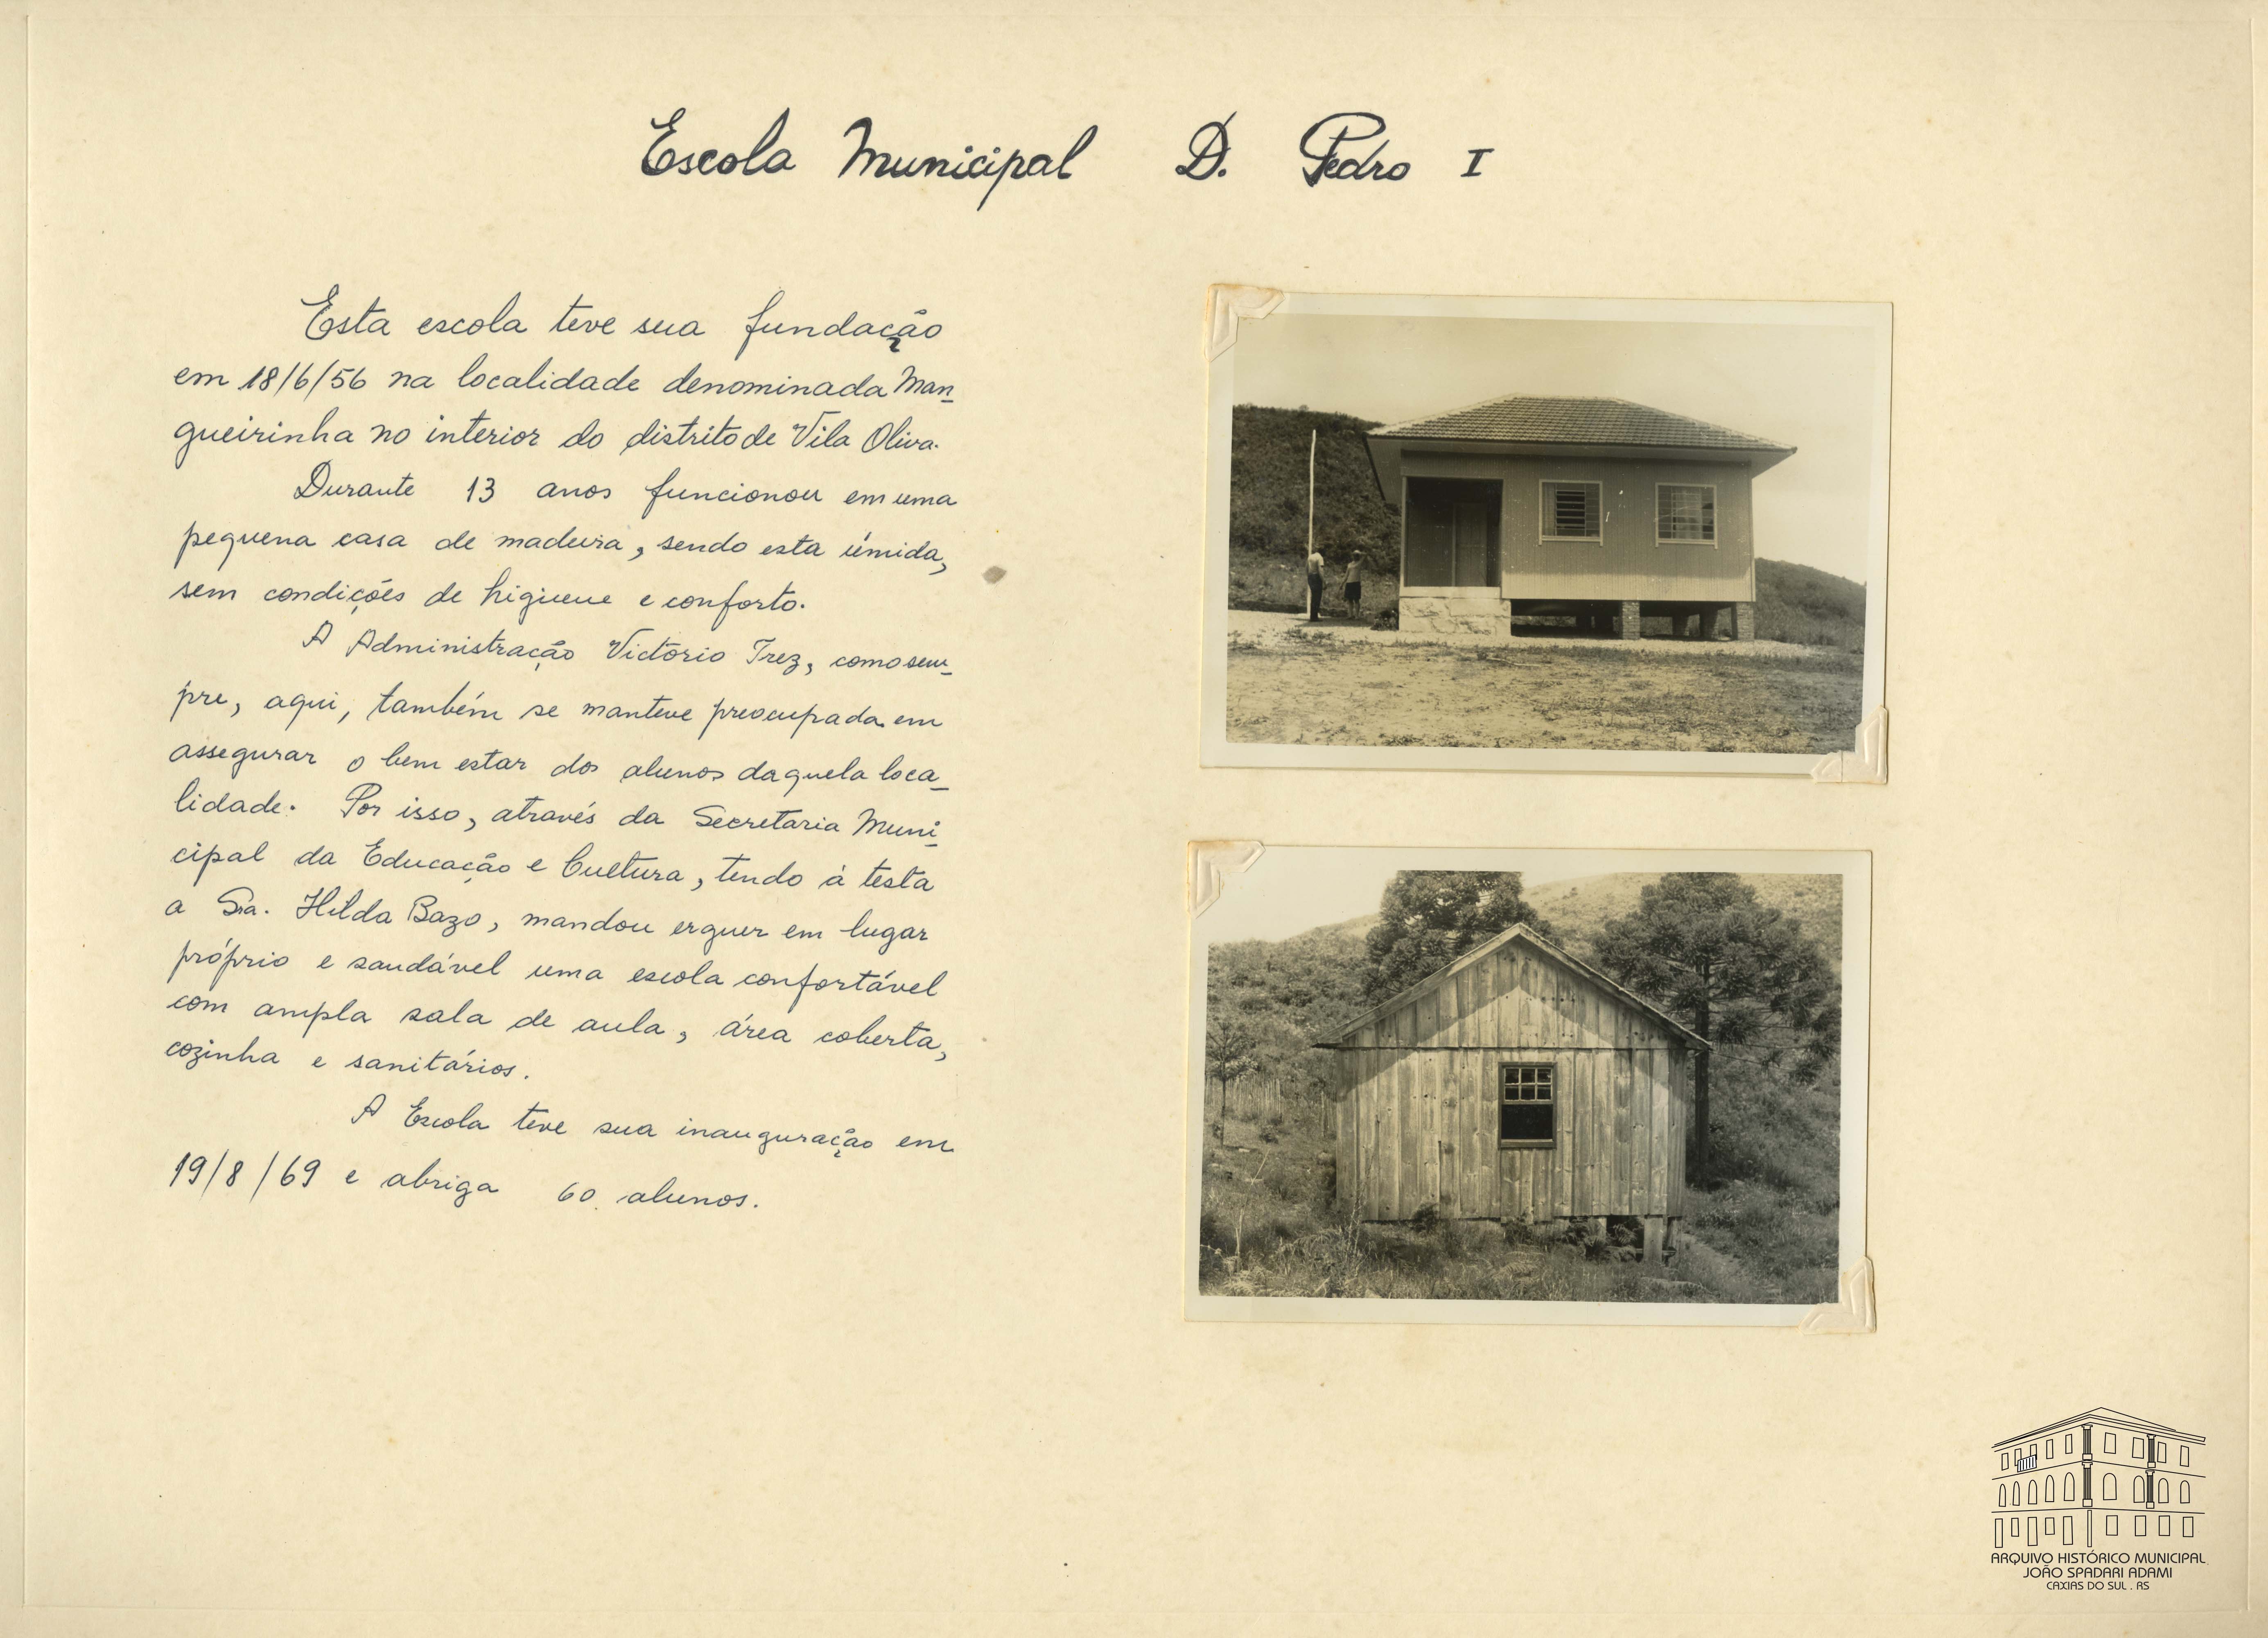 Escola Municipal D. Pedro I
Esta escola teve sua fundação
em 18/6/56 na localidade denominada Man-
gueirinha no interior do distrito de Vila Oliva.
Durante 13 anos funcionou em uma
pequena casa de madeira, sendo esta úmida,
sem condições de higiene e conforto.
A Administração Victório Trez, como sem-
pre, aqui, também se manteve preocupada em
assegurar o bem estar dos alunos daquela loca-
lidade. Por isso, através da Secretaria Muni-
cipal da Educação e Cultura, tendo à testa
a Sra. Hilda Bazo, mandou erguer em lugar
próprio e saudável uma escola confortável
com ampla sala de aula, área coberta,
cozinha e sanitários.
A Escola teve sua inauguração em
19/8/69 e abriga 60 alunos.
ARQUIVO HISTÓRICO MUNICIPAL
JOÃO SPADARI ADAMI
CAXIAS DO SUL . RS